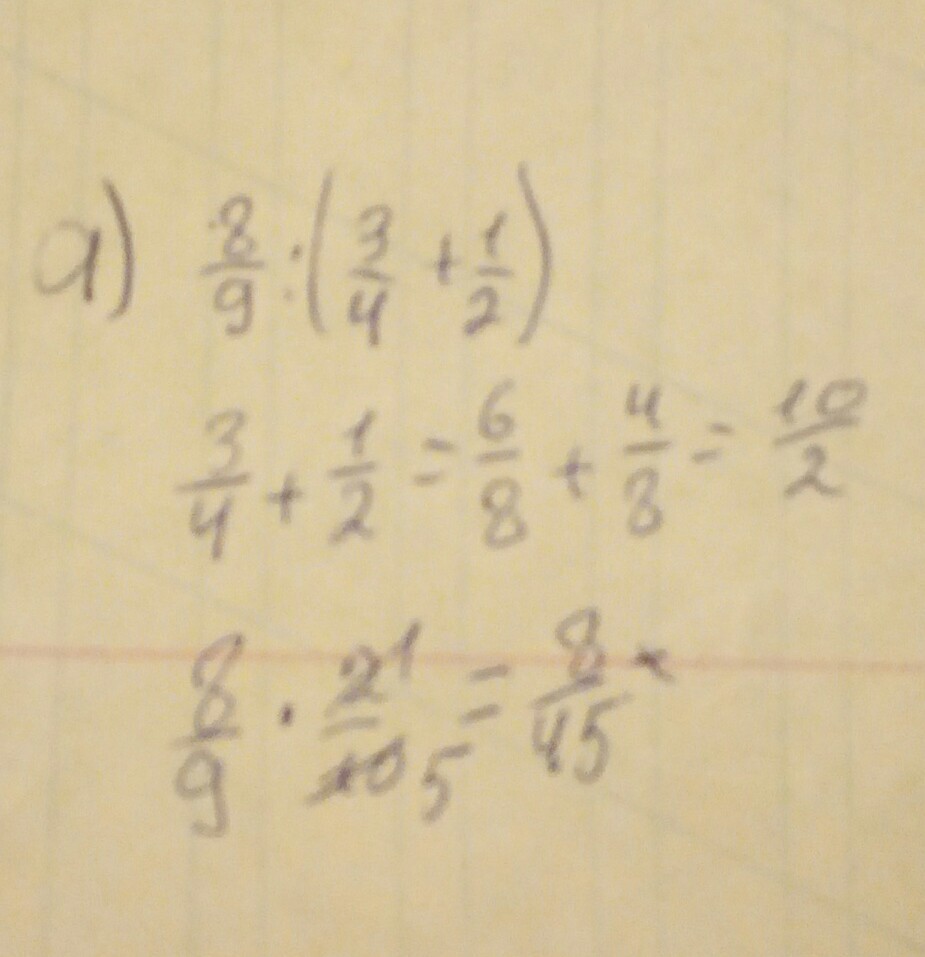 а) 8/9 : (3/4 + 1/2)
3/4 + 1/2 = 6/8 + 4/8 = 10/2
8/9 · 2 1/10 5 = 8/45